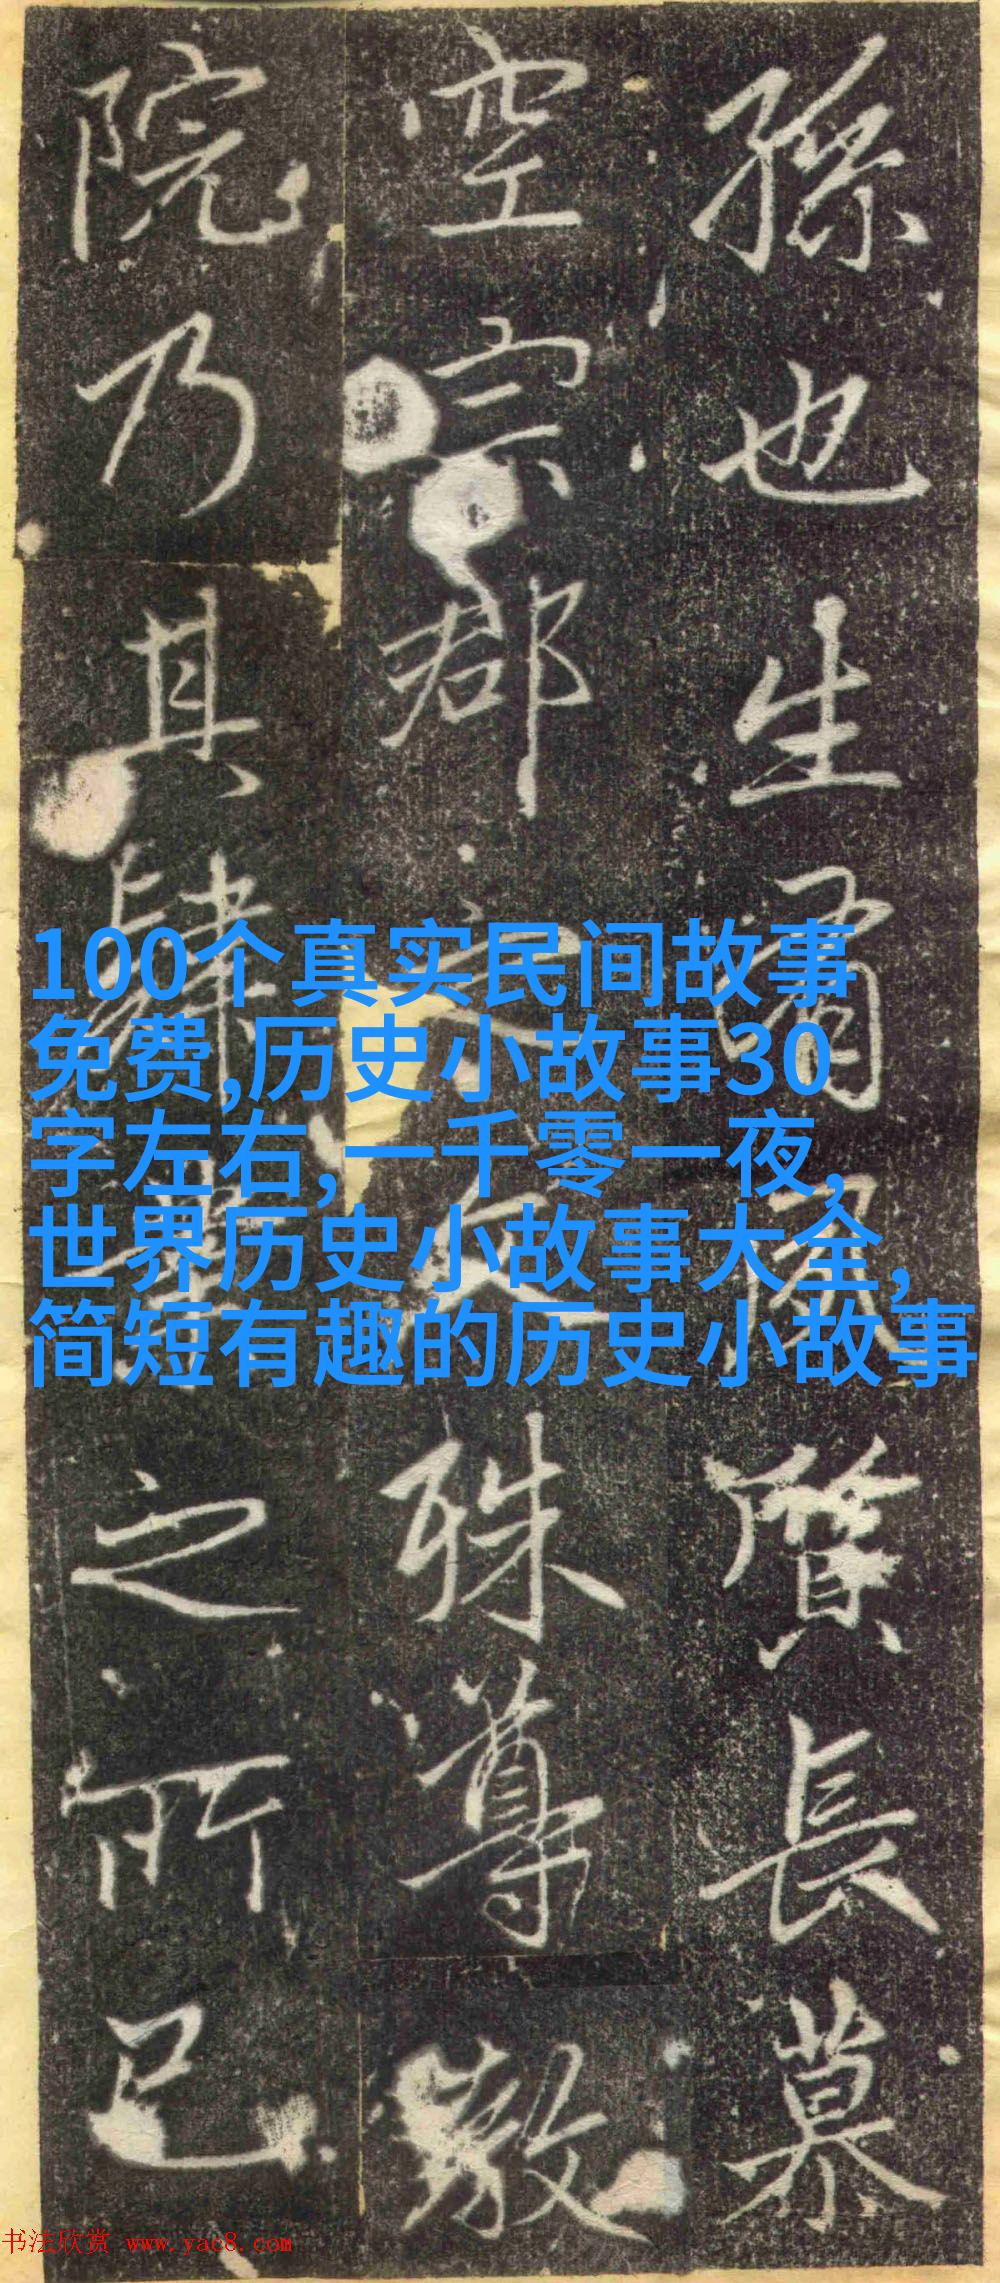 孫也生賢長慕
空宗郡之文殊尊
院乃其肆之所已
100个真实民间故事
免费,历史小故事30
字左右,一千零一夜,
世界历史小故事大全,
简短有趣的历史小故事
书法欣赏 www.yac8.com